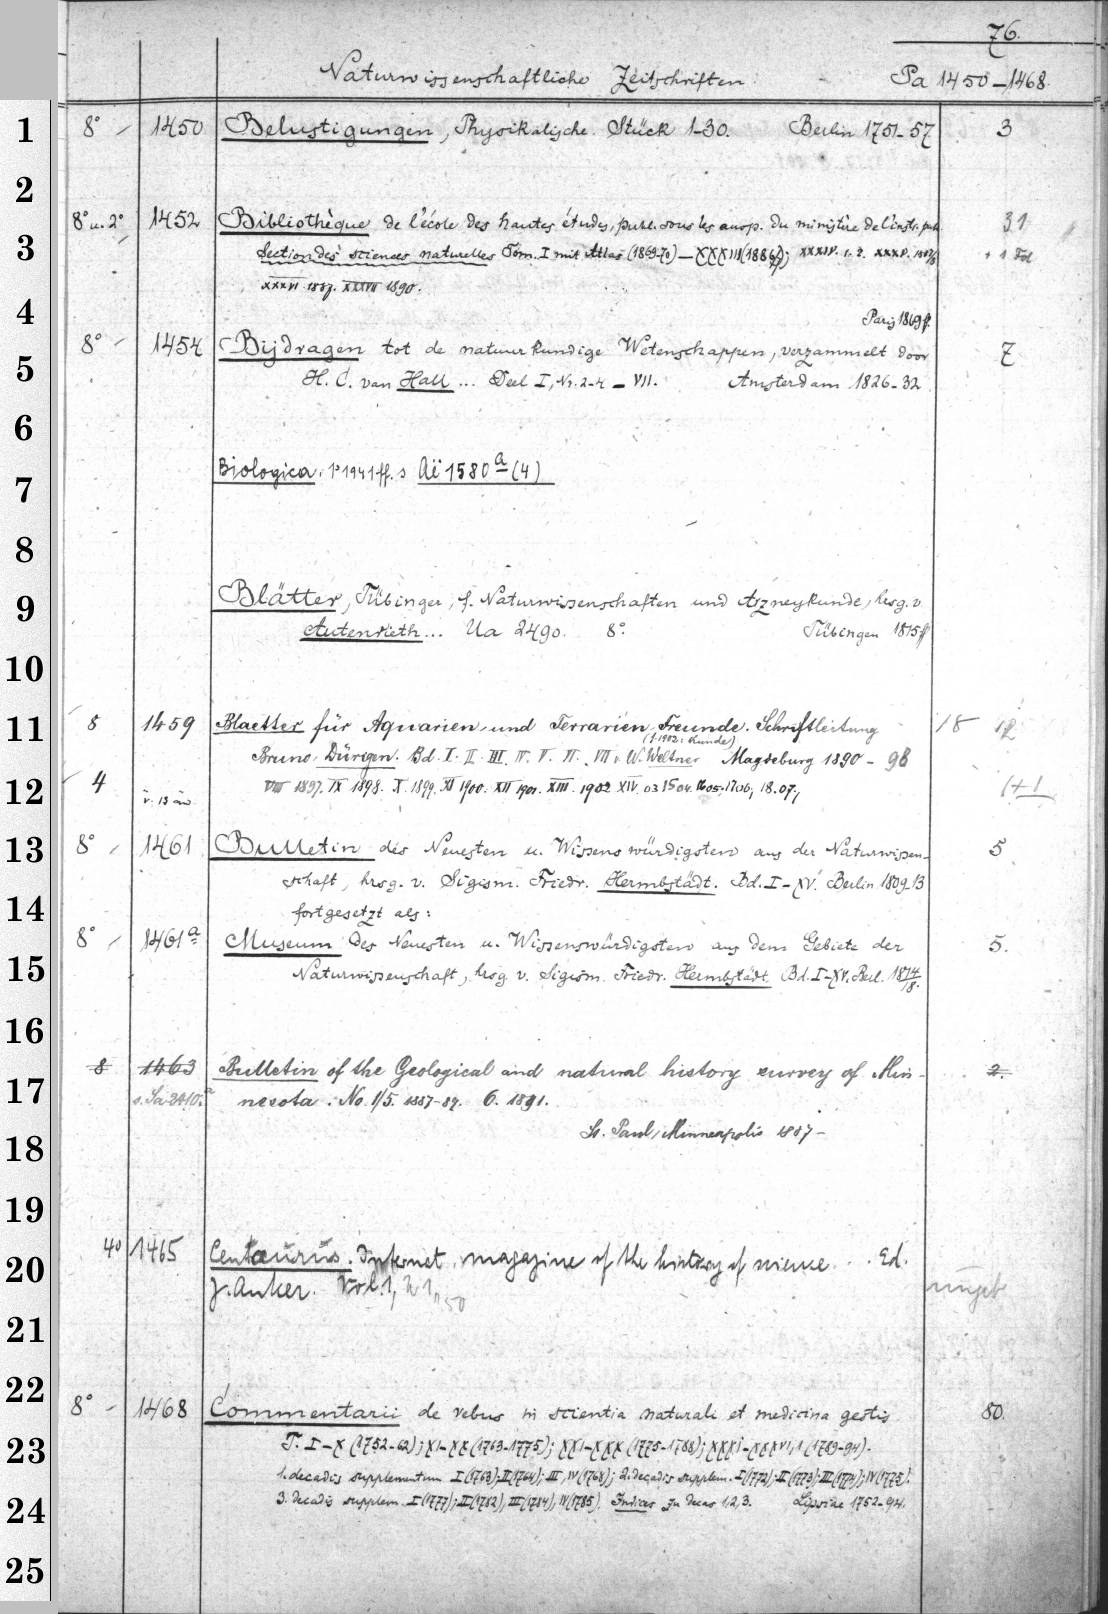 76.
Naturwissenschaftliche Zeitschriften Pa 1450-1468.
1 8° 1450 Belustigungen, Physikalische. Stück 1-30. Berlin 1751-57 3
2
8° u. 2° 1452 Bibliothèque de l'école des hautes études, publ. sous les ausp. du ministère de l'instr. pub. 31
3 Section des sciences naturelles Tom. I mit Atlas (1869-70) - XXXIII (1886/7); XXXIV. 1. 2. XXXV. 1887/8 + 1 Fol
XXXVI 1889. XXXVII 1890.
4 Paris 1869 ff.
8° 1454 Bijdragen tot de natuurkundige Wetenschappen, verzammelt door 7
5 H. C. van Hall ... Deel I, Nr. 2-4 - VII. Amsterdam 1826-32
6
7 Biologica. 1941 ff. s Aë 1580 a (4)
8
9 Blätter, Tübinger, f. Naturwissenschaften und Arzneykunde, hrsg. v.
Autenrieth ... Ua 2490. 8°. Tübingen 1815 ff
10
11 8 1459 Blaetter für Aquarien- und Terrarien-Freunde. Schriftleitung 18 12
(f. 1902: Kunde)
Bruno Dürigen. Bd. I. II. III. IV. V. VI. VII v. W. Weltner Magdeburg 1890-98
12 4 VIII 1897. IX 1898. X. 1899. XI 1900. XII 1901. XIII. 1902 XIV. 03 15 04. 16 05. 17 06, 18. 07., 1+1
13 8° 1461 Bulletin des Neuesten u. Wissenswürdigsten aus der Naturwissen- 5
schaft, hrsg. v. Sigism. Friedr. Hermbstädt. Bd. I-XV. Berlin 1809-13
14 fortgesetzt als:
8° 1461 a Museum des Neuesten u. Wissenswürdigsten aus dem Gebiete der 5.
15 Naturwissenschaft, hrsg. v. Sigism. Friedr. Hermbstädt. Bd. I-XV. Berl. 1814/18.
16
8 1463 Bulletin of the Geological and natural history survey of Min- 2.
17 s. Sa 2410 a nesota. No. 1/5. 1887-89. 6. 1891.
18 St. Paul, Minneapolis 1887-
19
4° 1465 Centaurus. Internat. magazine of the history of science . . . Ed.
20 J. Anker. Vol. 1, 50
21
22 8° 1468 Commentarii de rebus in scientia naturali et medicina gestis 80.
23 T. I-X (1752-62); XI-XX (1763-1775); XXI-XXX (1775-1788); XXXI-XXXVI,1 (1789-94).
1. decadis supplementum I (1763); II (1764); III, IV (1768); 2. decadis supplem. I (1772); II (1773); III (1774); IV (1775).
24 3. decadis supplem. I (1777); II (1782), III (1784), IV (1785). Indices zu decas 1, 2, 3. Lipsiae 1752-94.
25